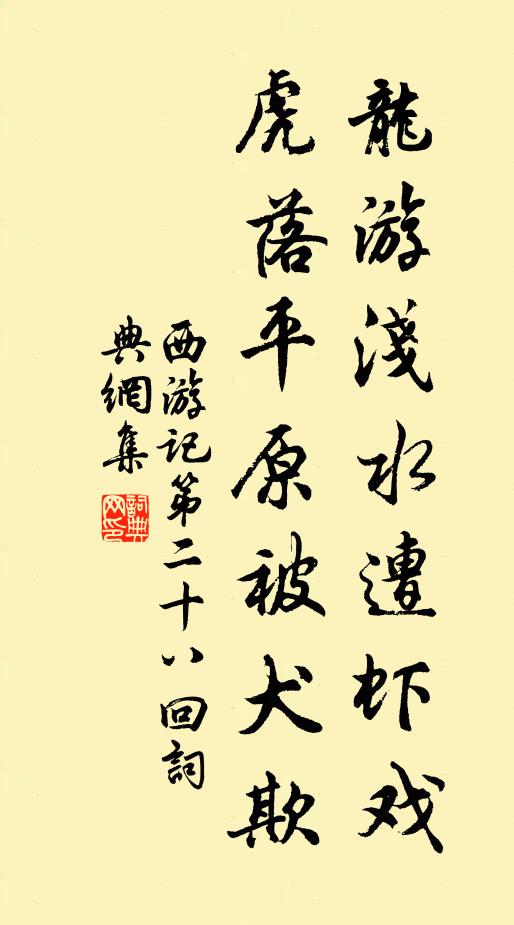 龍游淺水遭虾戏
虎落平原被犬欺
西游记第二十八回詞
典網集
詞典
网印